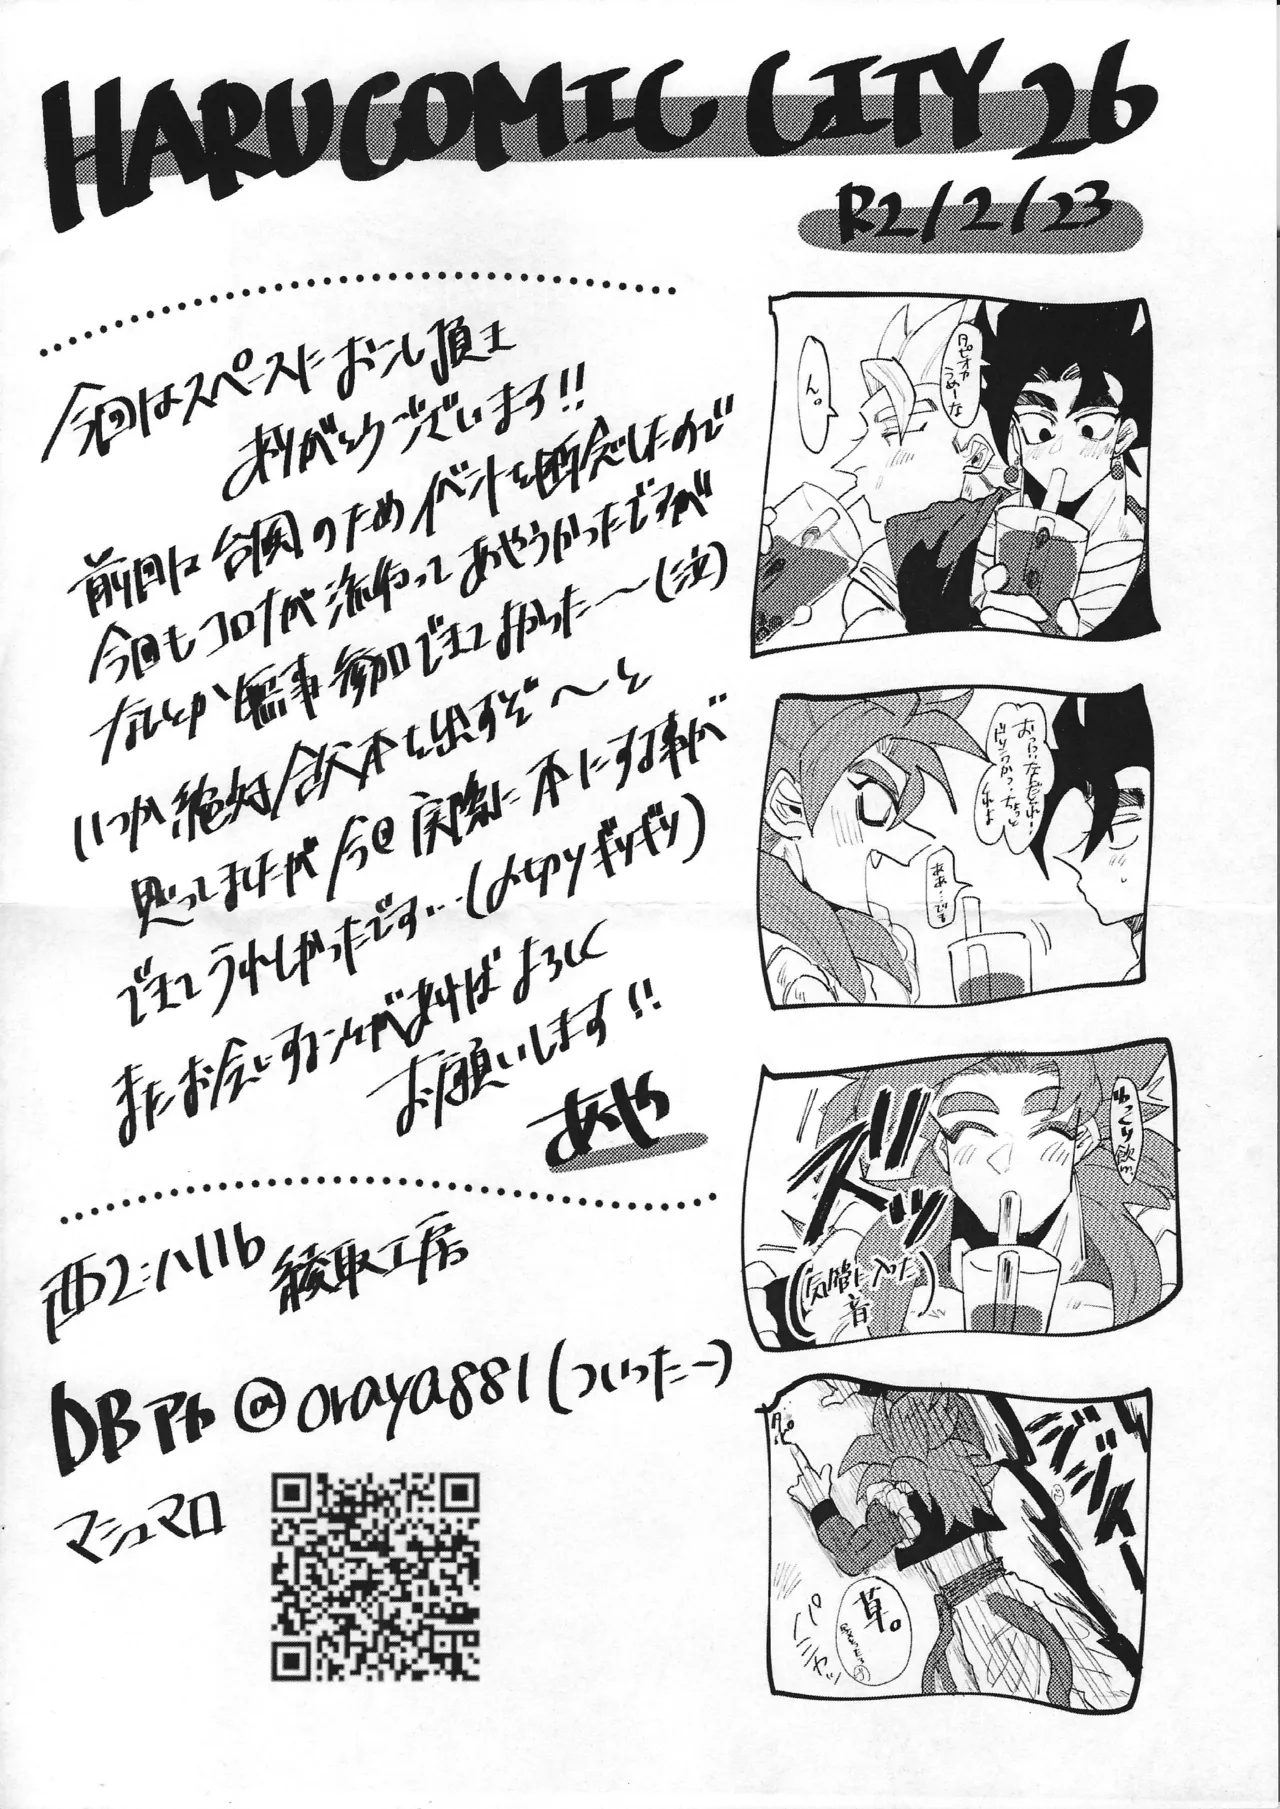 HARUCOMIC CITY 26
R2/2/23
今回はスペースにおこし頂き
ありがとうございます!!
前回は台風のためイベントを断念したので
今回もコロナが流行ってあやうかったですが
なんとか無事参加できてよかった〜(泣)
いつか絶対合体本を出すぞ〜と
思ってましたが今回実際に本にする事が
できてうれしかったです…(〆切ギリギリ)
またお会いすることがあればよろしく
お願いします!!
あや
西2:ハ11b 綾取工房
DBアカ @oraya881(ついったー)
マシュマロ
タピオカ
うめーな
ん。
ああ…
ゆっくり飲…
ズッ
(気管に入った
音)
タピ
草。